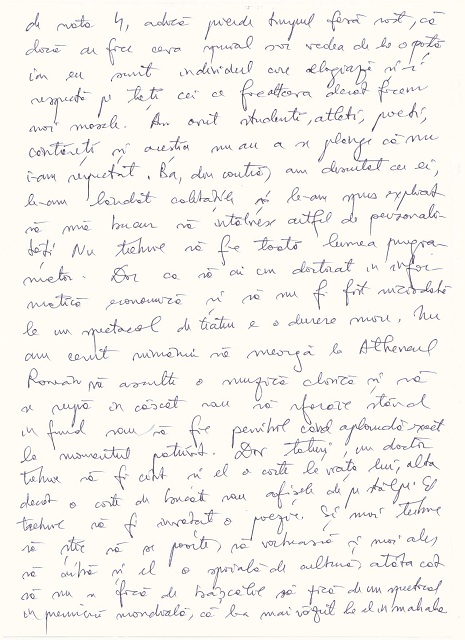 de nota 4, adică pierde timpul fără rost, că
dacă ar face ceva special s-ar vedea de la o poștă
iar eu sunt individul care elogiază și-i
respectă pe toți cei ce fac altceva decât facem
noi masele. Am avut studenți, atleți, poeți,
cântăreți și aceștia nu au a se plânge că nu
i-am respectat. Ba, din contră, am discutat cu ei,
le-am lăudat calitățile și le-am spus explicit
să mă bucur să întâlnesc astfel de personali-
tăți. Nu trebuie să fie toată lumea progra-
mator. Dar ca să ai un doctorat în infor-
matică economică și să nu fi fost niciodată
la un spectacol de teatru e o durere mare. Nu
am cerut nimănui să meargă la Atheneul
Român să asculte o muzică clasică și să
se rupă în căscat sau să sforăie stând
în fund sau să fie penibil când aplaudă exact
la momentul nepotrivit. Dar totuși, un doctor
trebuie să fi citit și el o carte la viața lui, alta
decât o carte de bucate sau afișele de pe stâlpi. El
trebuie să fi învățat o poezie. Și mai trebuie
să știe să se poarte, să vorbească și mai ales
să aibă și el o spoială de cultură, atâta cât
să nu se facă de bășcălie să zică de un spectacol
în premieră mondială, că l-a mai văzut la el în mahala